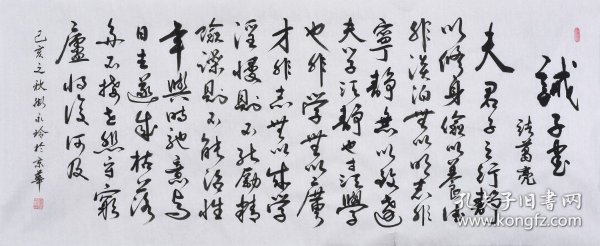 誡子書
諸葛亮
夫君子之行靜
以修身儉以養德
非淡泊無以明志非
寧靜無以致遠
夫學須靜也才須學
也非學無以廣
才非志無以成學
淫慢則不能勵精
險躁則不能治性
年與時馳意與
日去遂成枯落
多不接世悲守窮
廬將復何及
己亥之秋 於京華
孔夫子旧书网